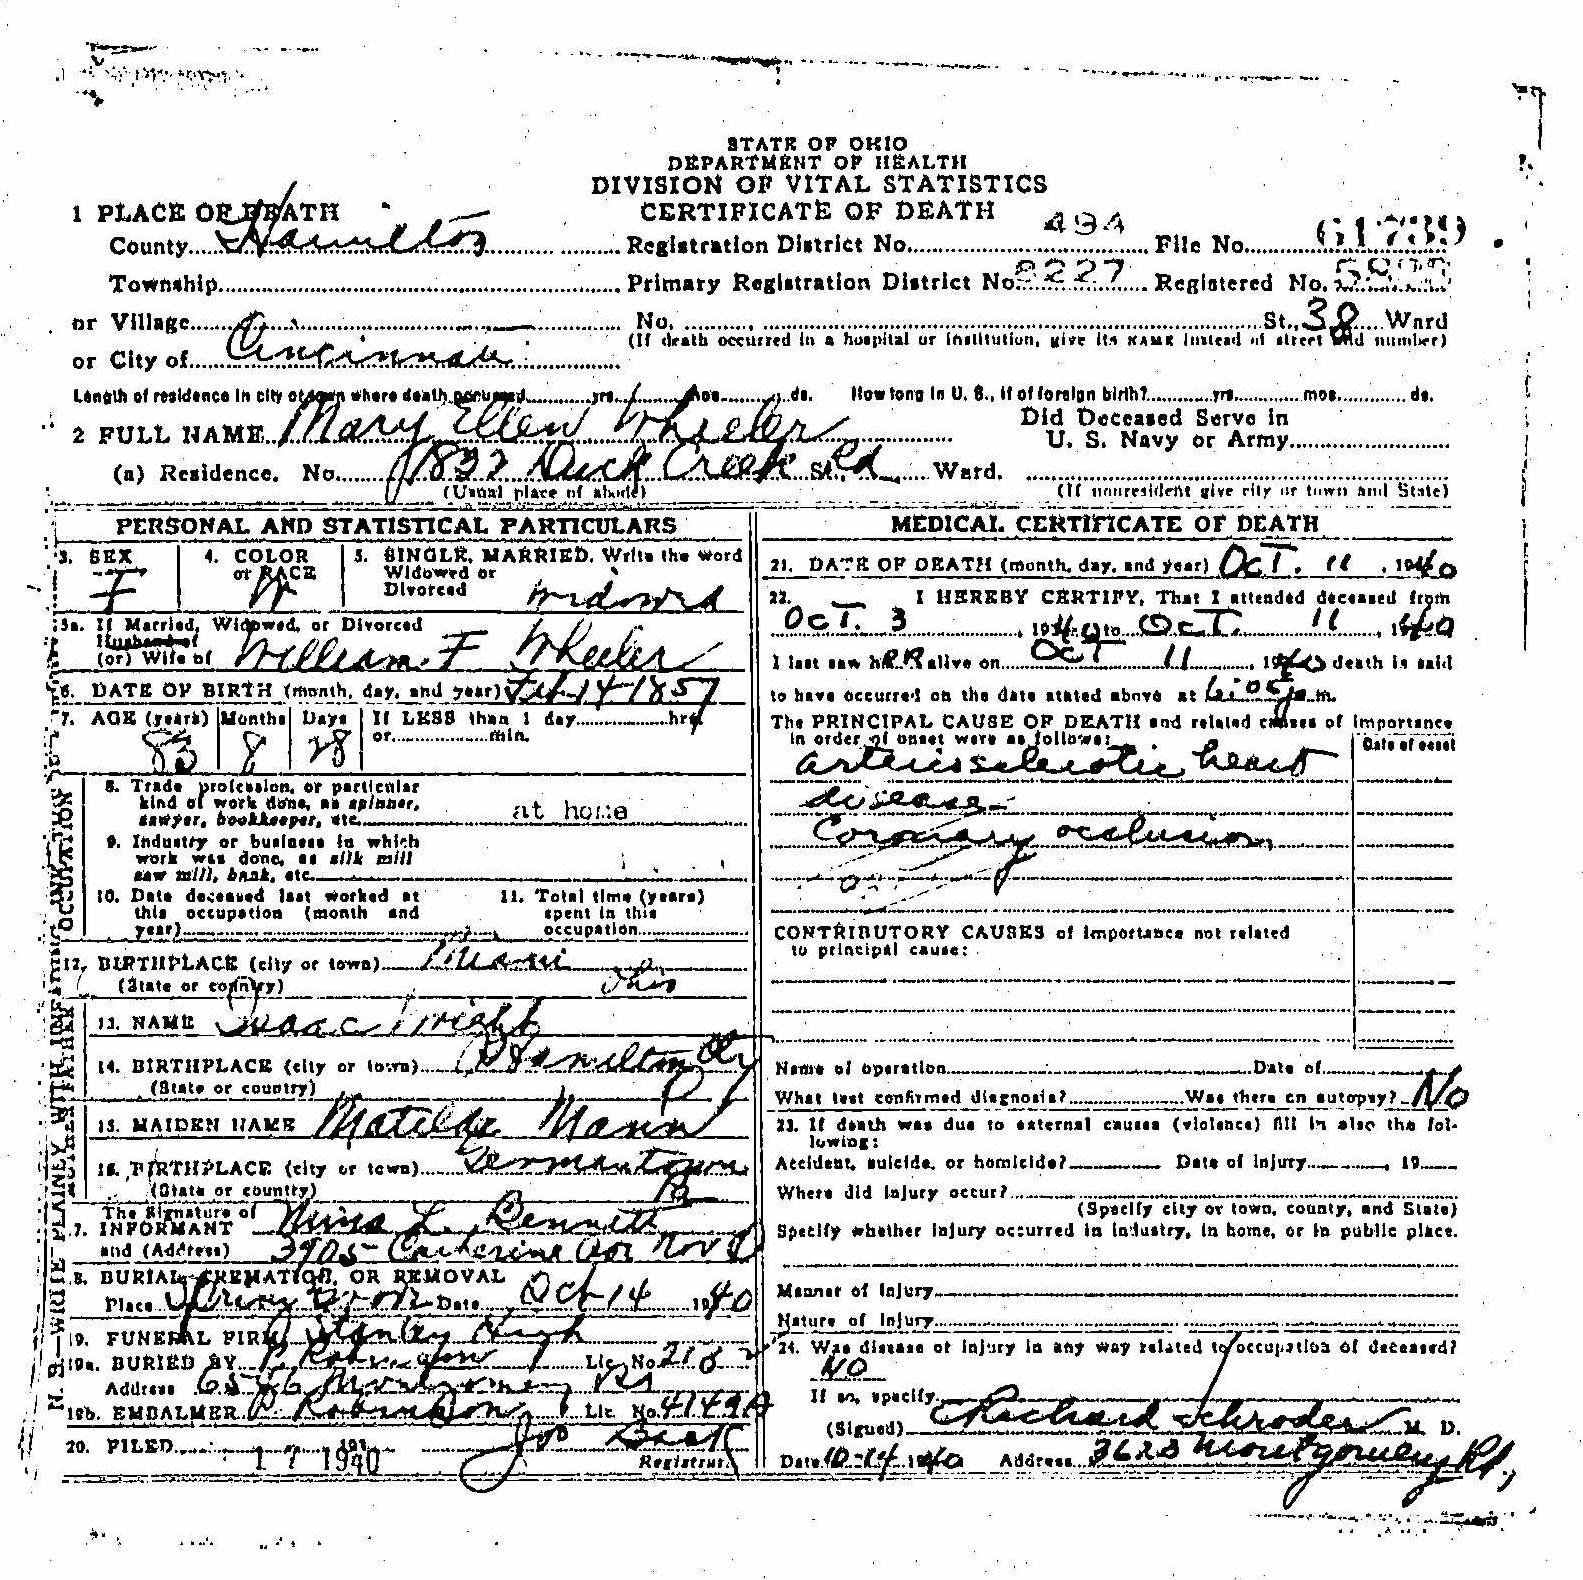 STATE OF OHIO
DEPARTMENT OF HEALTH
DIVISION OF VITAL STATISTICS
CERTIFICATE OF DEATH
1 PLACE OF DEATH
County Hamilton Registration District No. 494 File No. 61739
Township Primary Registration District No. 8227 Registered No.
or Village No. St., 38 Ward
(If death occurred in a hospital or institution, give its NAME instead of street and number)
or City of Cincinnati
Length of residence in city or town where death occurred yrs. mos. ds. How long in U. S., if of foreign birth? yrs. mos. ds.
2 FULL NAME Mary Ellen Wheeler Did Deceased Serve in U. S. Navy or Army
(a) Residence. No. 1832 Duck Creek St. Rd Ward.
(Usual place of abode) (If nonresident give city or town and State)
PERSONAL AND STATISTICAL PARTICULARS
3. SEX F 4. COLOR or RACE W 5. SINGLE, MARRIED, Write the word Widowed or Divorced widowed
5a. If Married, Widowed, or Divorced
Husband of
(or) Wife of William F Wheeler
6. DATE OF BIRTH (month, day, and year) Feb 14 1857
7. AGE (years) 83 Months 8 Days 28 If LESS than 1 day hrs. or min.
OCCUPATION
8. Trade, profession, or particular
kind of work done, as spinner,
sawyer, bookkeeper, etc. at home
9. Industry or business in which
work was done, as silk mill
saw mill, bank, etc.
10. Date deceased last worked at
this occupation (month and
year)
11. Total time (years)
spent in this
occupation
12. BIRTHPLACE (city or town) Miami
(State or country) Ohio
FATHER
13. NAME Isaac Wright
14. BIRTHPLACE (city or town) Hamilton
(State or country)
MOTHER
15. MAIDEN NAME Matilda Mann
16. BIRTHPLACE (city or town) Germantown
(State or country) Pa
The Signature of
17. INFORMANT L. Bennett
and (Address) 3905 Catherine Ave Nor
18. BURIAL, CREMATION, OR REMOVAL
Place Spring Grove Date Oct 14 1940
19. FUNERAL FIRM
19a. BURIED BY Lic. No.
Address Montgomery Rd
19b. EMBALMER P. Robinson Lic. No. 4149A
20. FILED 17 1940
Registrar.
N. B.—WRITE PLAINLY WITH UNFADING INK—THIS
MEDICAL CERTIFICATE OF DEATH
21. DATE OF DEATH (month, day, and year) Oct. 11, 1940
22. I HEREBY CERTIFY, That I attended deceased from
Oct. 3, 1940 to Oct. 11, 1940
I last saw her alive on Oct 11, 1940 death is said
to have occurred on the date stated above at 6:05 p.m.
The PRINCIPAL CAUSE OF DEATH and related causes of importance
in order of onset were as follows: Date of onset
Arteriosclerotic heart
disease
Coronary occlusion
CONTRIBUTORY CAUSES of importance not related
to principal cause:
Name of operation Date of
What test confirmed diagnosis? Was there an autopsy? No
23. If death was due to external causes (violence) fill in also the fol-
lowing:
Accident, suicide, or homicide? Date of injury , 19
Where did injury occur?
(Specify city or town, county, and State)
Specify whether injury occurred in industry, in home, or in public place.
Manner of Injury
Nature of Injury
24. Was disease or injury in any way related to occupation of deceased?
NO
If so, specify
(Signed) Richard Schroder M. D.
Date 10-14 1940 Address 3623 Montgomery Rd,